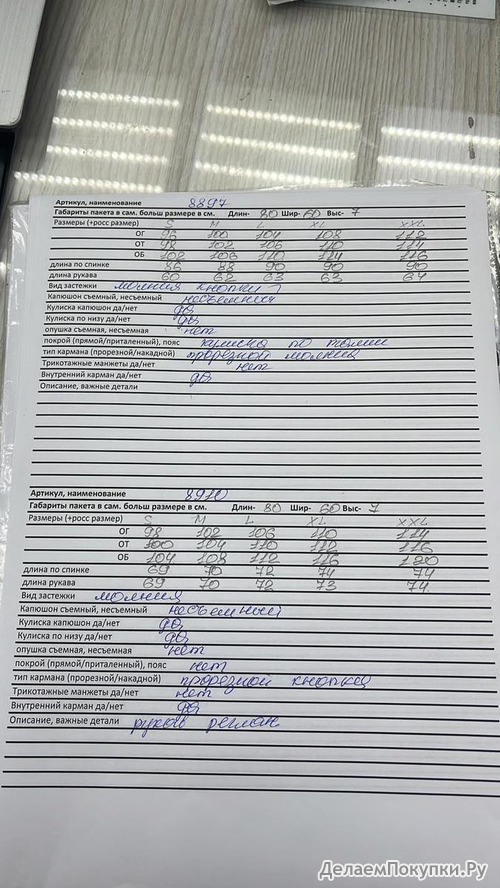 Артикул, наименование 8897
Габариты пакета в сам. больш размере в см. Длин- 80 Шир- 60 Выс- 7
Размеры (+росс размер) S M L XL XXL
ОГ 96 100 104 108 112
ОТ 98 102 106 110 114
ОБ 102 106 110 114 116
длина по спинке 86 88 90 90 90
длина рукава 60 62 63 63 64
Вид застежки молния кнопки
Капюшон съемный, несъемный несъемный
Кулиска капюшон да/нет да
Кулиска по низу да/нет да
опушка съемная, несъемная нет
покрой (прямой/приталенный), пояс кулиска по талии
тип кармана (прорезной/накадной) прорезной молния
Трикотажные манжеты да/нет нет
Внутренний карман да/нет да
Описание, важные детали
Артикул, наименование 8920
Габариты пакета в сам. больш размере в см. Длин- 80 Шир- 60 Выс- 7
Размеры (+росс размер) S M L XL XXL
ОГ 98 102 106 110 114
ОТ 100 104 110 112 116
ОБ 104 108 112 116 120
длина по спинке 69 70 72 74 74
длина рукава 69 70 72 73 74
Вид застежки молния
Капюшон съемный, несъемный несъемный
Кулиска капюшон да/нет да
Кулиска по низу да/нет да
опушка съемная, несъемная нет
покрой (прямой/приталенный), пояс нет
тип кармана (прорезной/накадной) прорезной кнопка
Трикотажные манжеты да/нет нет
Внутренний карман да/нет да
Описание, важные детали рукав реглан
ДелаемПокупки.Ру